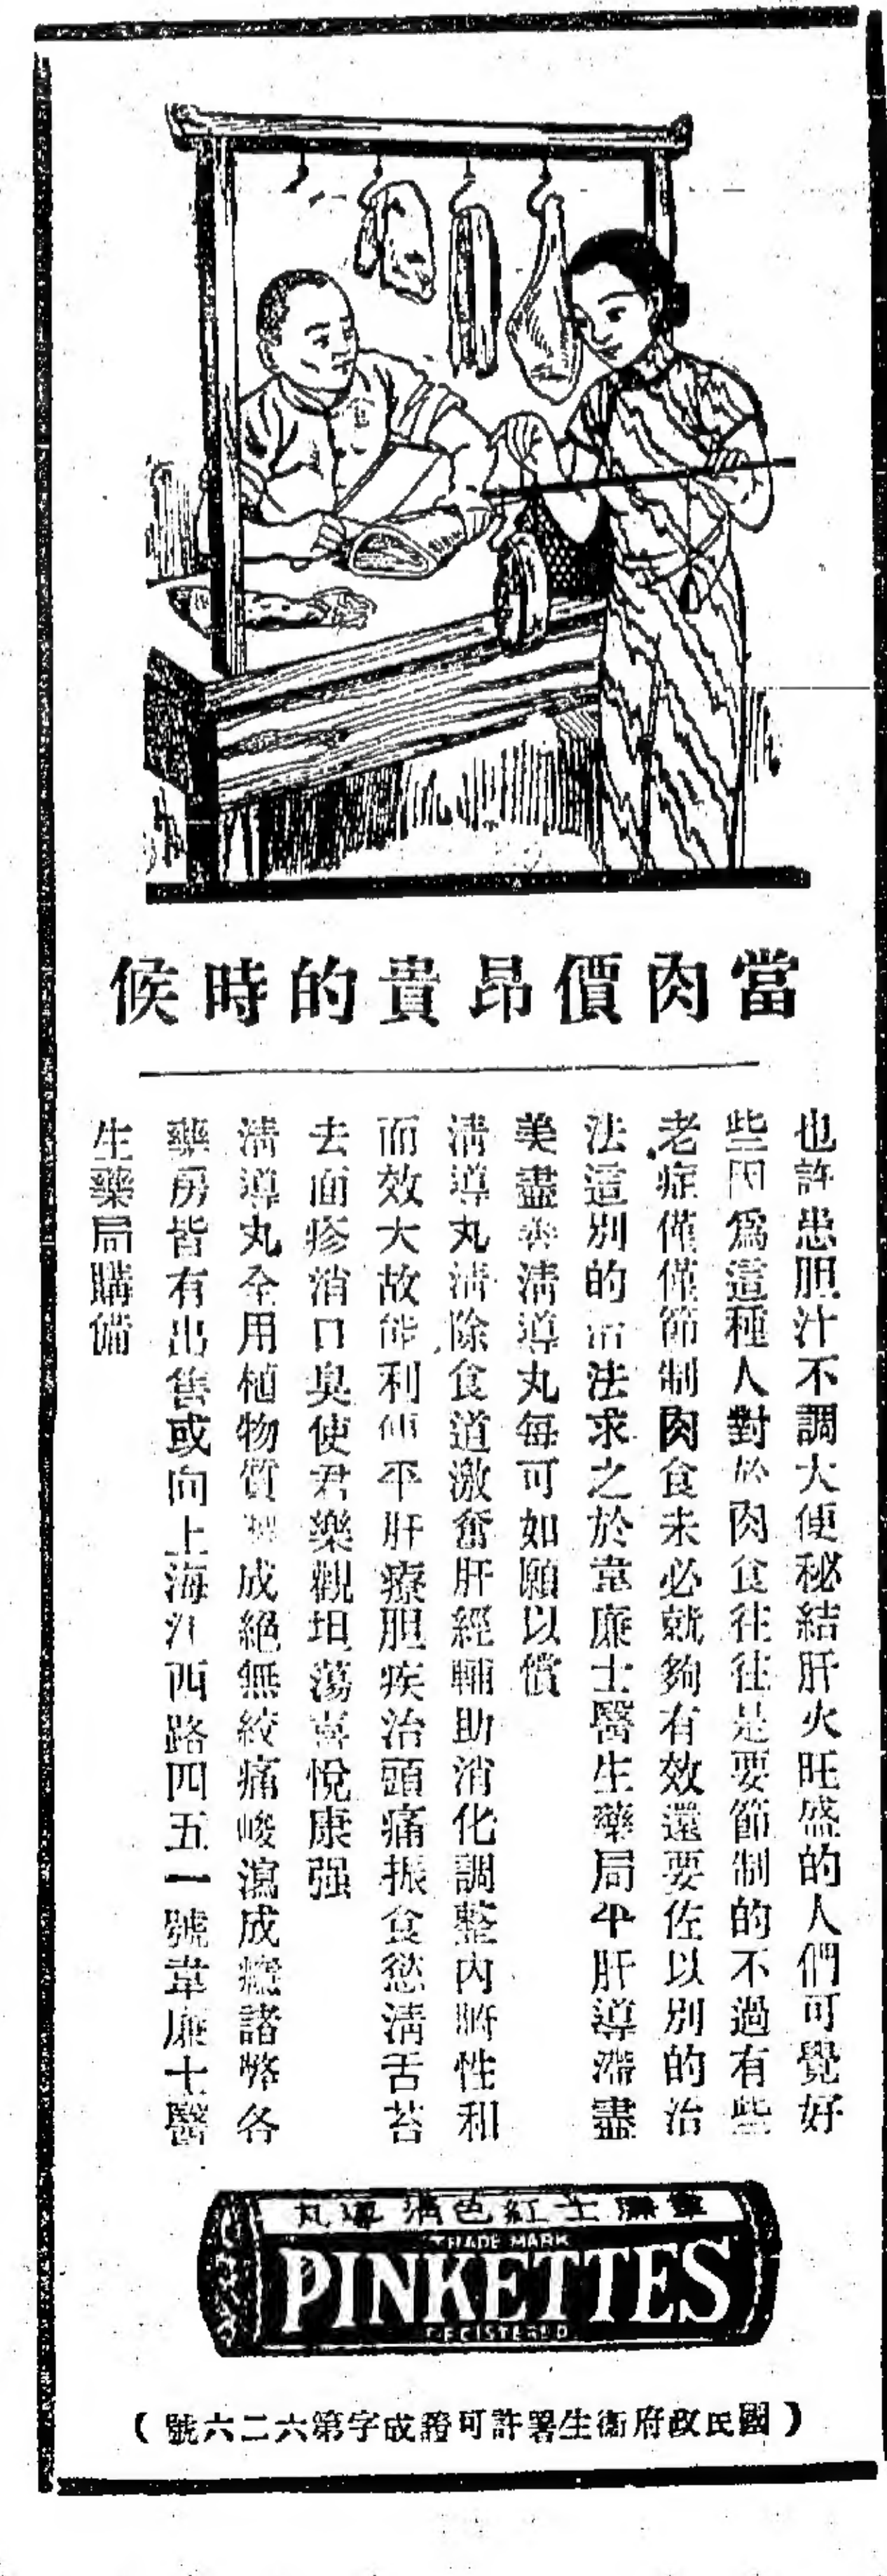 當肉價昂貴的時候
也許患胆汁不調大便秘結肝火旺盛的人們可覺好
些因爲這種人對於肉食往往是要節制的不過有些
老症僅僅節制肉食未必就夠有效還要佐以別的治
法這別的治法求之於韋廉士醫生藥局平肝導滯盡
美盡善淸導丸每可如願以償
淸導丸淸除食道激奮肝經輔助消化調整內臟性和
而效大故能利便平肝療胆疾治頭痛振食慾淸舌苔
去面疹消口臭使君樂觀坦蕩喜悅康强
淸導丸全用植物質製成絕無絞痛峻瀉成癮諸弊各
藥房皆有出售或向上海江西路四五一號韋廉士醫
生藥局購備
韋廉士紅色淸導丸
TRADE MARK
PINKETTES
REGISTERED
(國民政府衞生署許可證成字第六二六號)